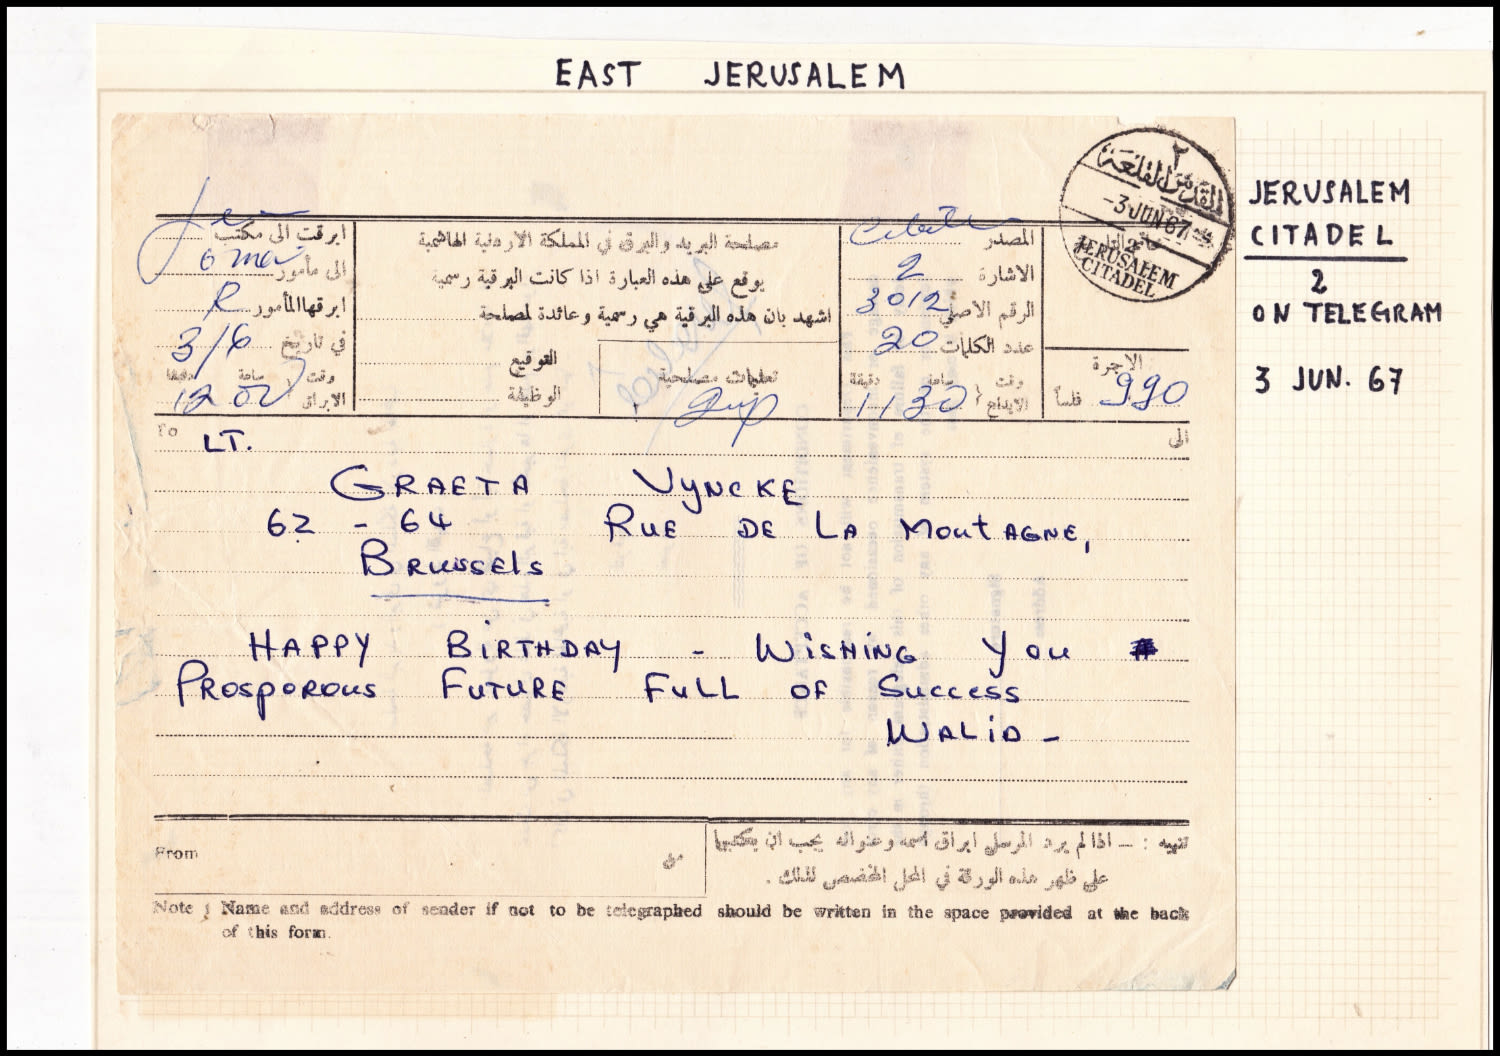 EAST JERUSALEM
٢
القدس القلعة
-3 JUN 67
2
JERUSALEM
CITADEL
JERUSALEM
CITADEL
2
ON TELEGRAM
3 JUN. 67
ابرقت الى مكتب
الى مأمور Omar
ابرقها المأمور R
في تاريخ 3/6
وقت الابراق ساعة دقيقة 12 02
مصلحة البريد والبرق في المملكة الاردنية الهاشمية
يوقع على هذه العبارة اذا كانت البرقية رسمية
اشهد بان هذه البرقية هي رسمية وعائدة لمصلحة
التوقيع
الوظيفة
تعليمات مصلحية
المصدر Citadel
الاشارة 2
الرقم الاصلي 3012
عدد الكلمات 20
وقت الايداع ساعة دقيقة 11 30
الاجرة
990 فلساً
To الى
LT.
GRAETA VYNCKE
62 - 64 RUE DE LA MOUTAGNE,
BRUSSELS
HAPPY BIRTHDAY - WISHING YOU
PROSPOROUS FUTURE FULL OF SUCCESS
WALID -
From من
تنبيه : — اذا لم يرد المرسل ابراق اسمه وعنوانه يجب ان يكتبها
على ظهر هذه الورقة في المحل المخصص لذلك .
Note : Name and address of sender if not to be telegraphed should be written in the space provided at the back
of this form.